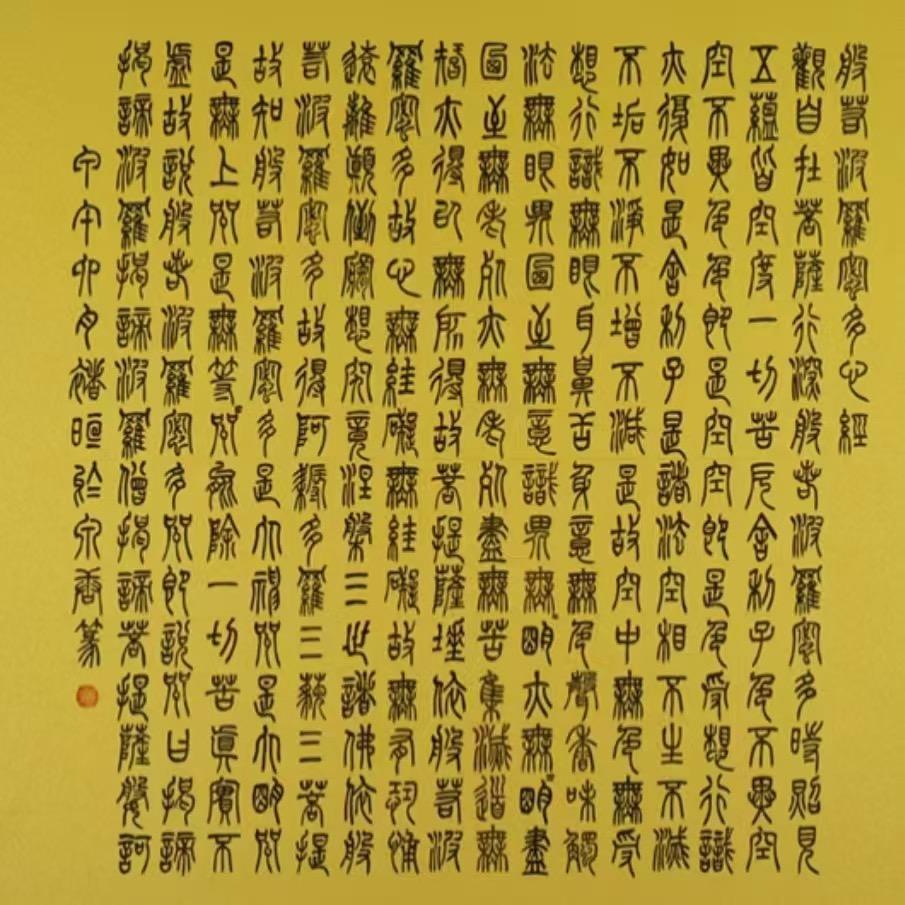 般若波羅蜜多心經
觀自在菩薩行深般若波羅蜜多時照見
五蘊皆空度一切苦厄舍利子色不異空
空不異色色即是空空即是色受想行識
亦復如是舍利子是諸法空相不生不滅
不垢不淨不增不減是故空中無色無受
想行識無眼耳鼻舌身意無色聲香味觸
法無眼界乃至無意識界無〻明亦無〻明盡
乃至無老死亦無老死盡無苦集滅道無
智亦得以無所得故菩提薩埵依般若波
羅蜜多故心無罣礙無罣礙故無有恐怖
遠離顛倒夢想究竟涅槃三世諸佛依般
若波羅蜜多故得阿耨多羅三藐三菩提
故知般若波羅蜜多是大神咒是大明咒
是無上咒是無等〻咒能除一切苦真實不
虛故說般若波羅蜜多咒即說咒曰揭諦
揭諦波羅揭諦波羅僧揭諦菩提薩婆訶
甲午卯月褚晅於泉唐篆